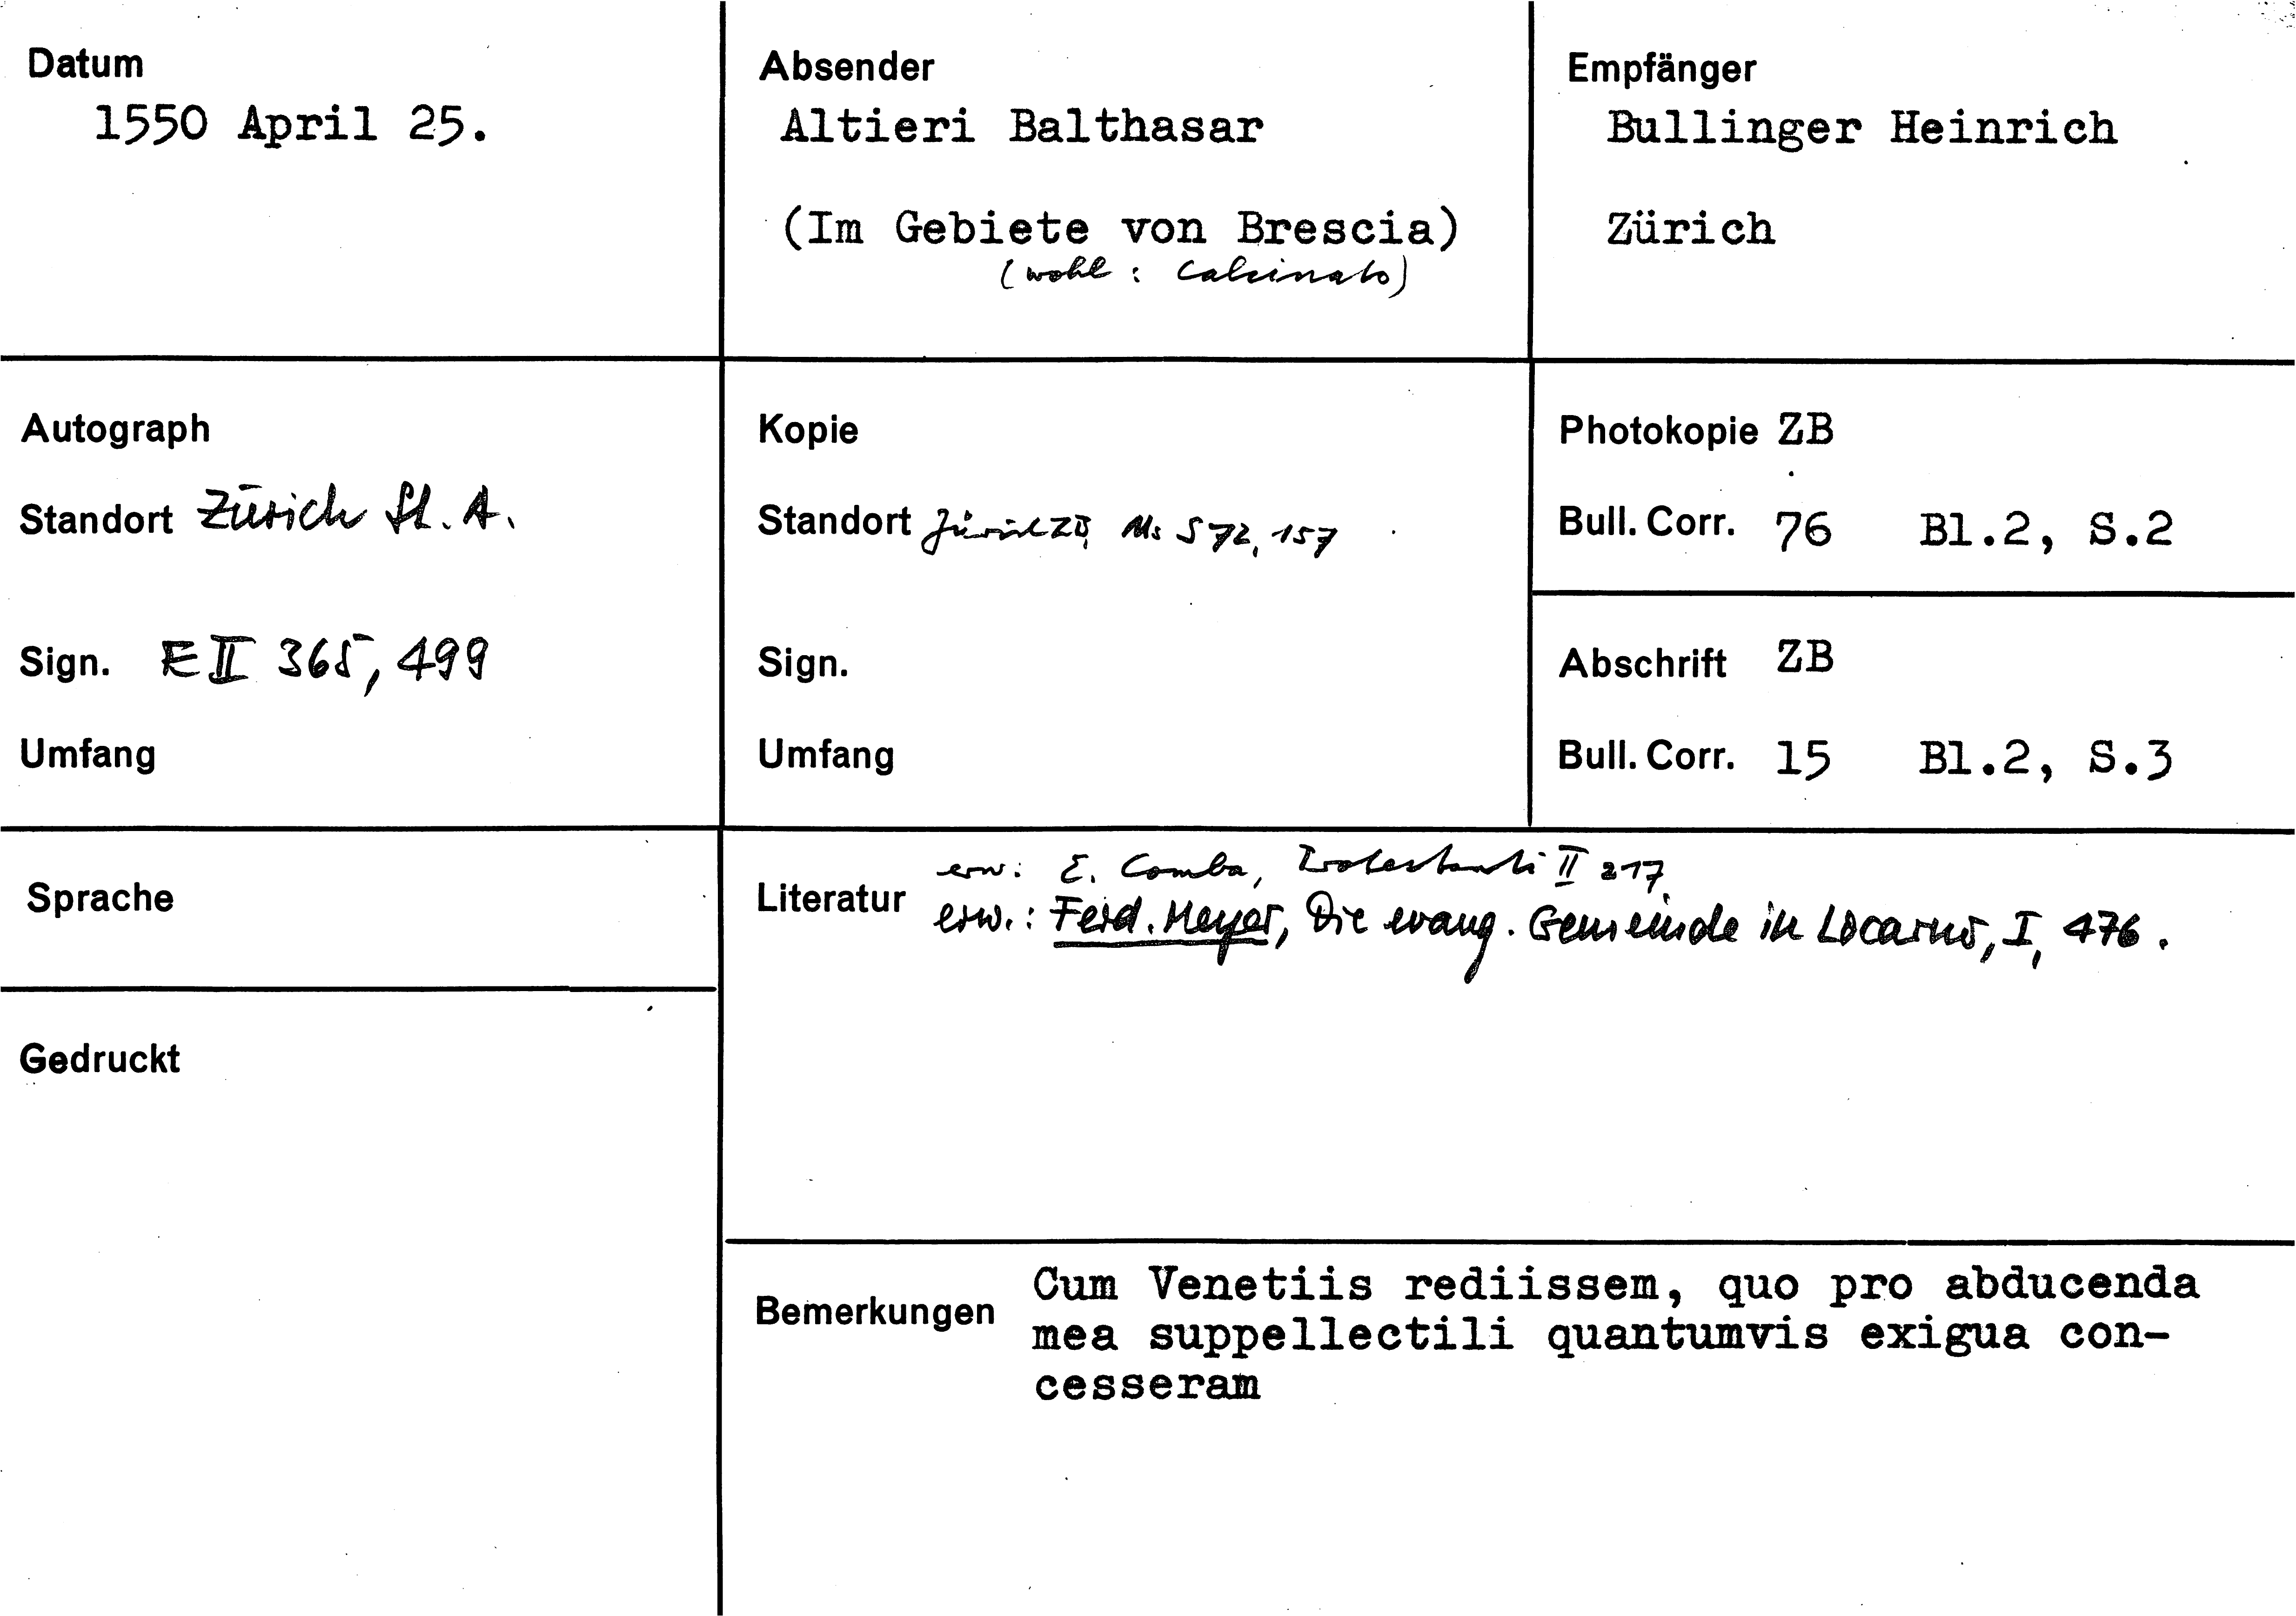 Datum
1550 April 25.
Absender
Altieri Balthasar
(Im Gebiete von Brescia)
(wohl : Calcinato)
Empfänger
Bullinger Heinrich
Zürich
Autograph
Standort Zürich St. A.
Sign. E II 365, 499
Umfang
Kopie
Standort Zürich ZB, Ms S 72, 157
Sign.
Umfang
Photokopie ZB
Bull. Corr. 76 Bl.2, S.2
Abschrift ZB
Bull. Corr. 15 Bl.2, S.3
Sprache
Gedruckt
Literatur
erw: E. Comba, Protestanti II 217.
erw.: Ferd. Meyer, Die evang. Gemeinde in Locarno, I, 476.
Bemerkungen
Cum Venetiis rediissem, quo pro abducenda
mea suppellectili quantumvis exigua con-
cesseram